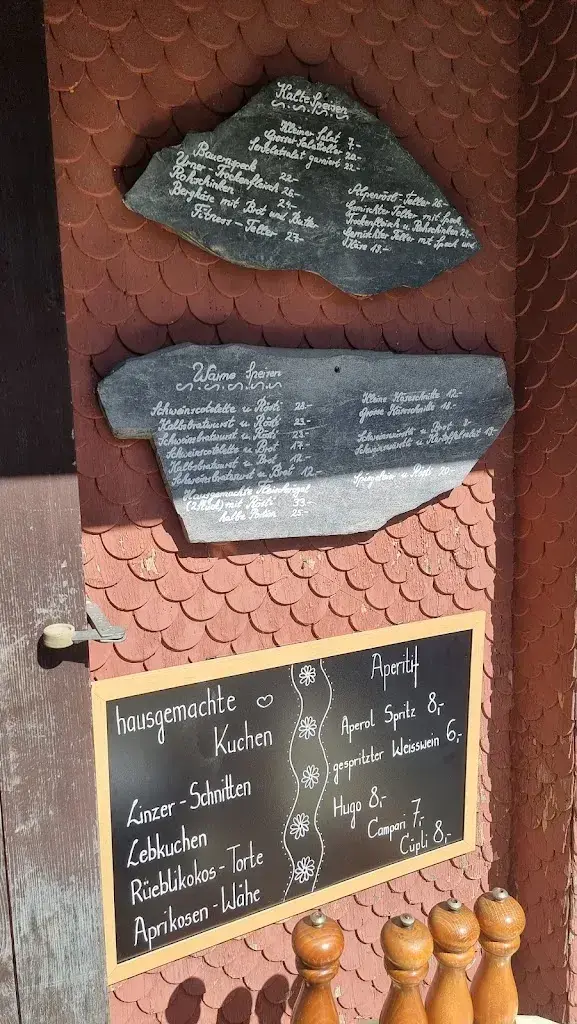 Kalte Speisen
Kleiner Salat 7.-
Grosser Salatteller 20.-
Servelatsalat garniert 22.-
Bauernspeck 22.-
Urner-Trockenfleisch 25.-
Rohschinken 24.-
Bergkäse mit Brot und Butter
Fitness-Teller 27.-
Alpenrösli-Teller 26.-
Gemischter Teller mit Speck,
Trockenfleisch u. Rohschinken
Gemischter Teller mit Speck und
Käse 13.-
Warme Speisen
Schweinscotelette u Rösti 28.-
Kalbsbratwurst u Rösti 23.-
Schweinsbratwurst u. Rösti 23.-
Schweinscotelette u Brot 17.-
Kalbsbratwurst u Brot 12.-
Schweinsbratwurst u. Brot 12.-
Hausgemachte
(2 Stück) mit Rösti 33.-
halbe Portion 25.-
Kleine Käseschnitte 12.-
Grosse Käseschnitte 18.-
Schweinswürstli u Brot 8.-
Schweinswürstli u Kartoffelsalat
Spiegeleier u Rösti 20.-
hausgemachte ♡
Kuchen
Linzer-Schnitten
Lebkuchen
Rüeblikokos-Torte
Aprikosen-Wähe
Aperitif
Aperol Spritz 8,-
gespritzter Weisswein 6,-
Hugo 8,-
Campari 7,-
Cüpli 8,-